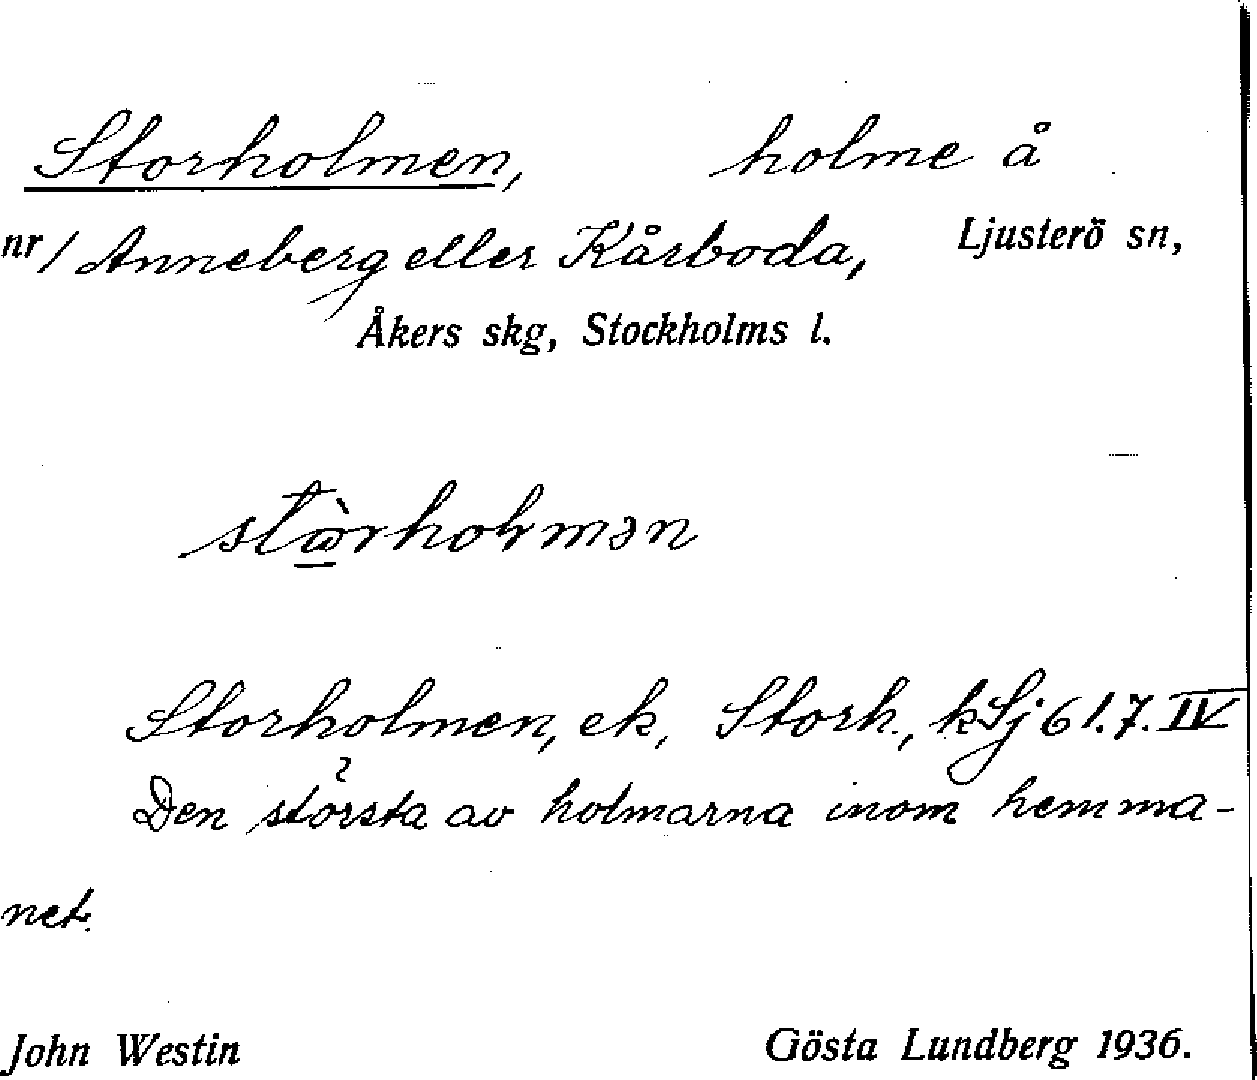 Storholmen, holme å
nr 1 Anneberg eller Kårboda, Ljusterö sn,
Åkers skg, Stockholms l.
Storholmen, ek, Storh., kSj 61.7.IV
Den största av holmarna inom hemma-
net.
John Westin Gösta Lundberg 1936.